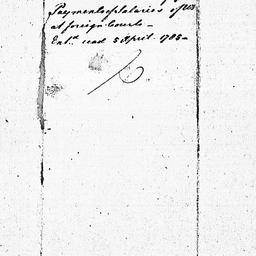 Payments of Salaries
at foreign Courts —
Ent.d read 5 April 1785 —